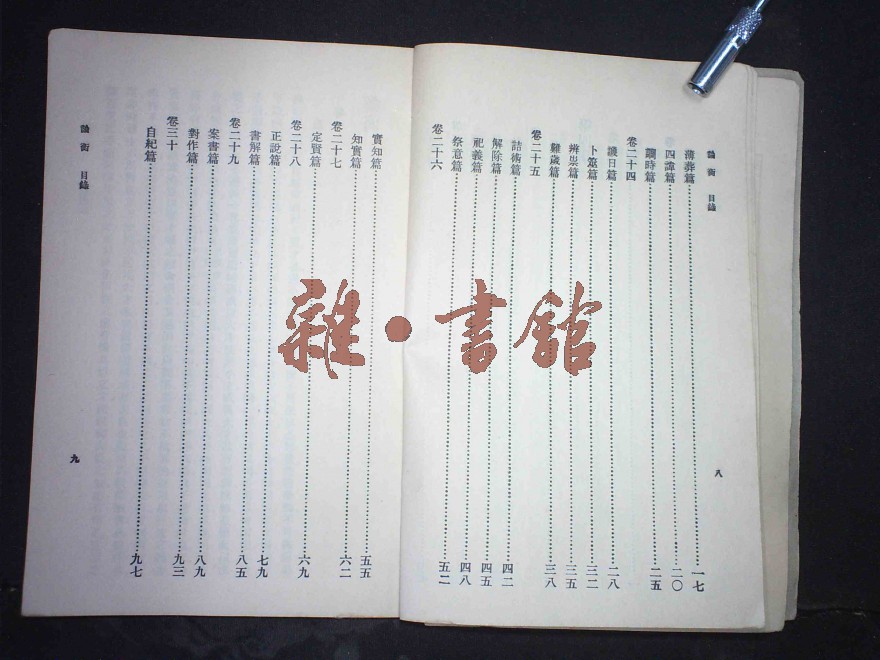 論衡 目錄
薄葬篇……一七
四諱篇……二〇
讕時篇……二五
卷二十四
譏日篇……二八
卜筮篇……三二
辨祟篇……三五
難歲篇……三八
卷二十五
詰術篇……四二
解除篇……四五
祀義篇……四八
祭意篇……五二
卷二十六
八
實知篇……五五
知實篇……六二
卷二十七
定賢篇……六九
卷二十八
正說篇……七九
書解篇……八五
卷二十九
案書篇……八九
對作篇……九三
卷三十
自紀篇……九七
論衡 目錄
九
雜·書館